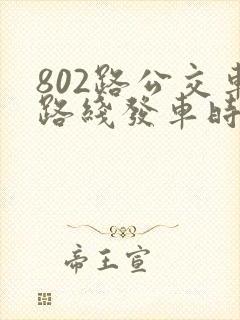 802路公交車
路綫發車時
帝王宣